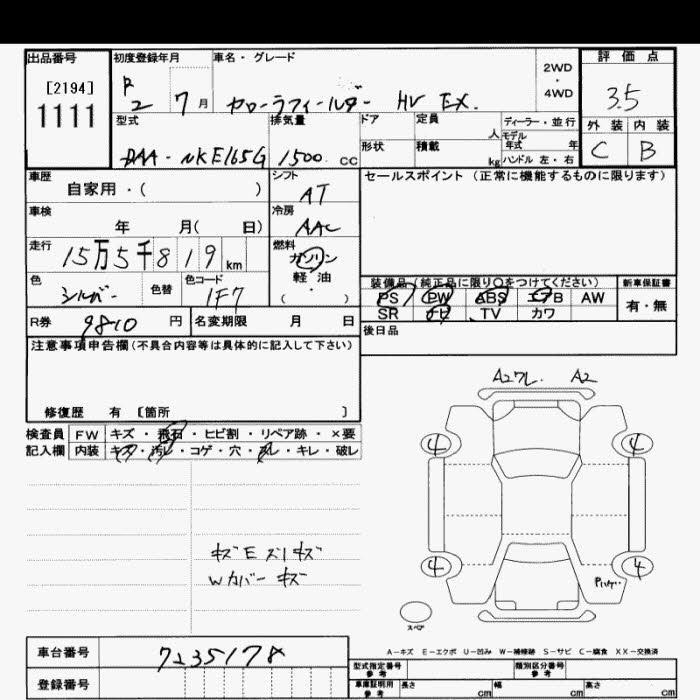 出品番号 初度登録年月 車名・グレード 2WD・4WD 評価点
[2194]
1111
R2 7月 カローラフィールダー HV EX. 3.5
型式 排気量 ドア 定員 人 ディーラー・並行
モデル年式 年
外装 内装
DAA-NKE165G 1500 CC 形状 積載 kg ハンドル 左・右
C B
車歴 自家用・( ) シフト AT
セールスポイント (正常に機能するものに限ります)
車検 年 月( 日) 冷房 AAC
走行 15万5千819km 燃料 ガソリン
軽・油
( )
色 シルバー 色替 色コード 1F7
装備品 (純正品に限り○をつけてください) 新車保証書
PS PW ABS エアB AW 有・無
SR ナビ TV カワ
R券 9810 円 名変期限 月 日
後日品
注意事項申告欄(不具合内容等は具体的に記入して下さい)
修復歴 有 [箇所 ]
検査員 FW キズ・飛石・ヒビ割・リペア跡・×要
記入欄 内装 キズ・汚レ・コゲ・穴・スレ・キレ・破レ
A2 A2
4 4
4 4
キズ ズリキズ
Wカバー キズ
スペア
A-キズ E-エクボ U-凹み W-補修跡 S-サビ C-腐食 XX-交換済
車台番号 7235178
登録番号
型式指定番号 参考 類別区分番号 参考
車庫証明用 参考 長さ cm 幅 cm 高さ cm